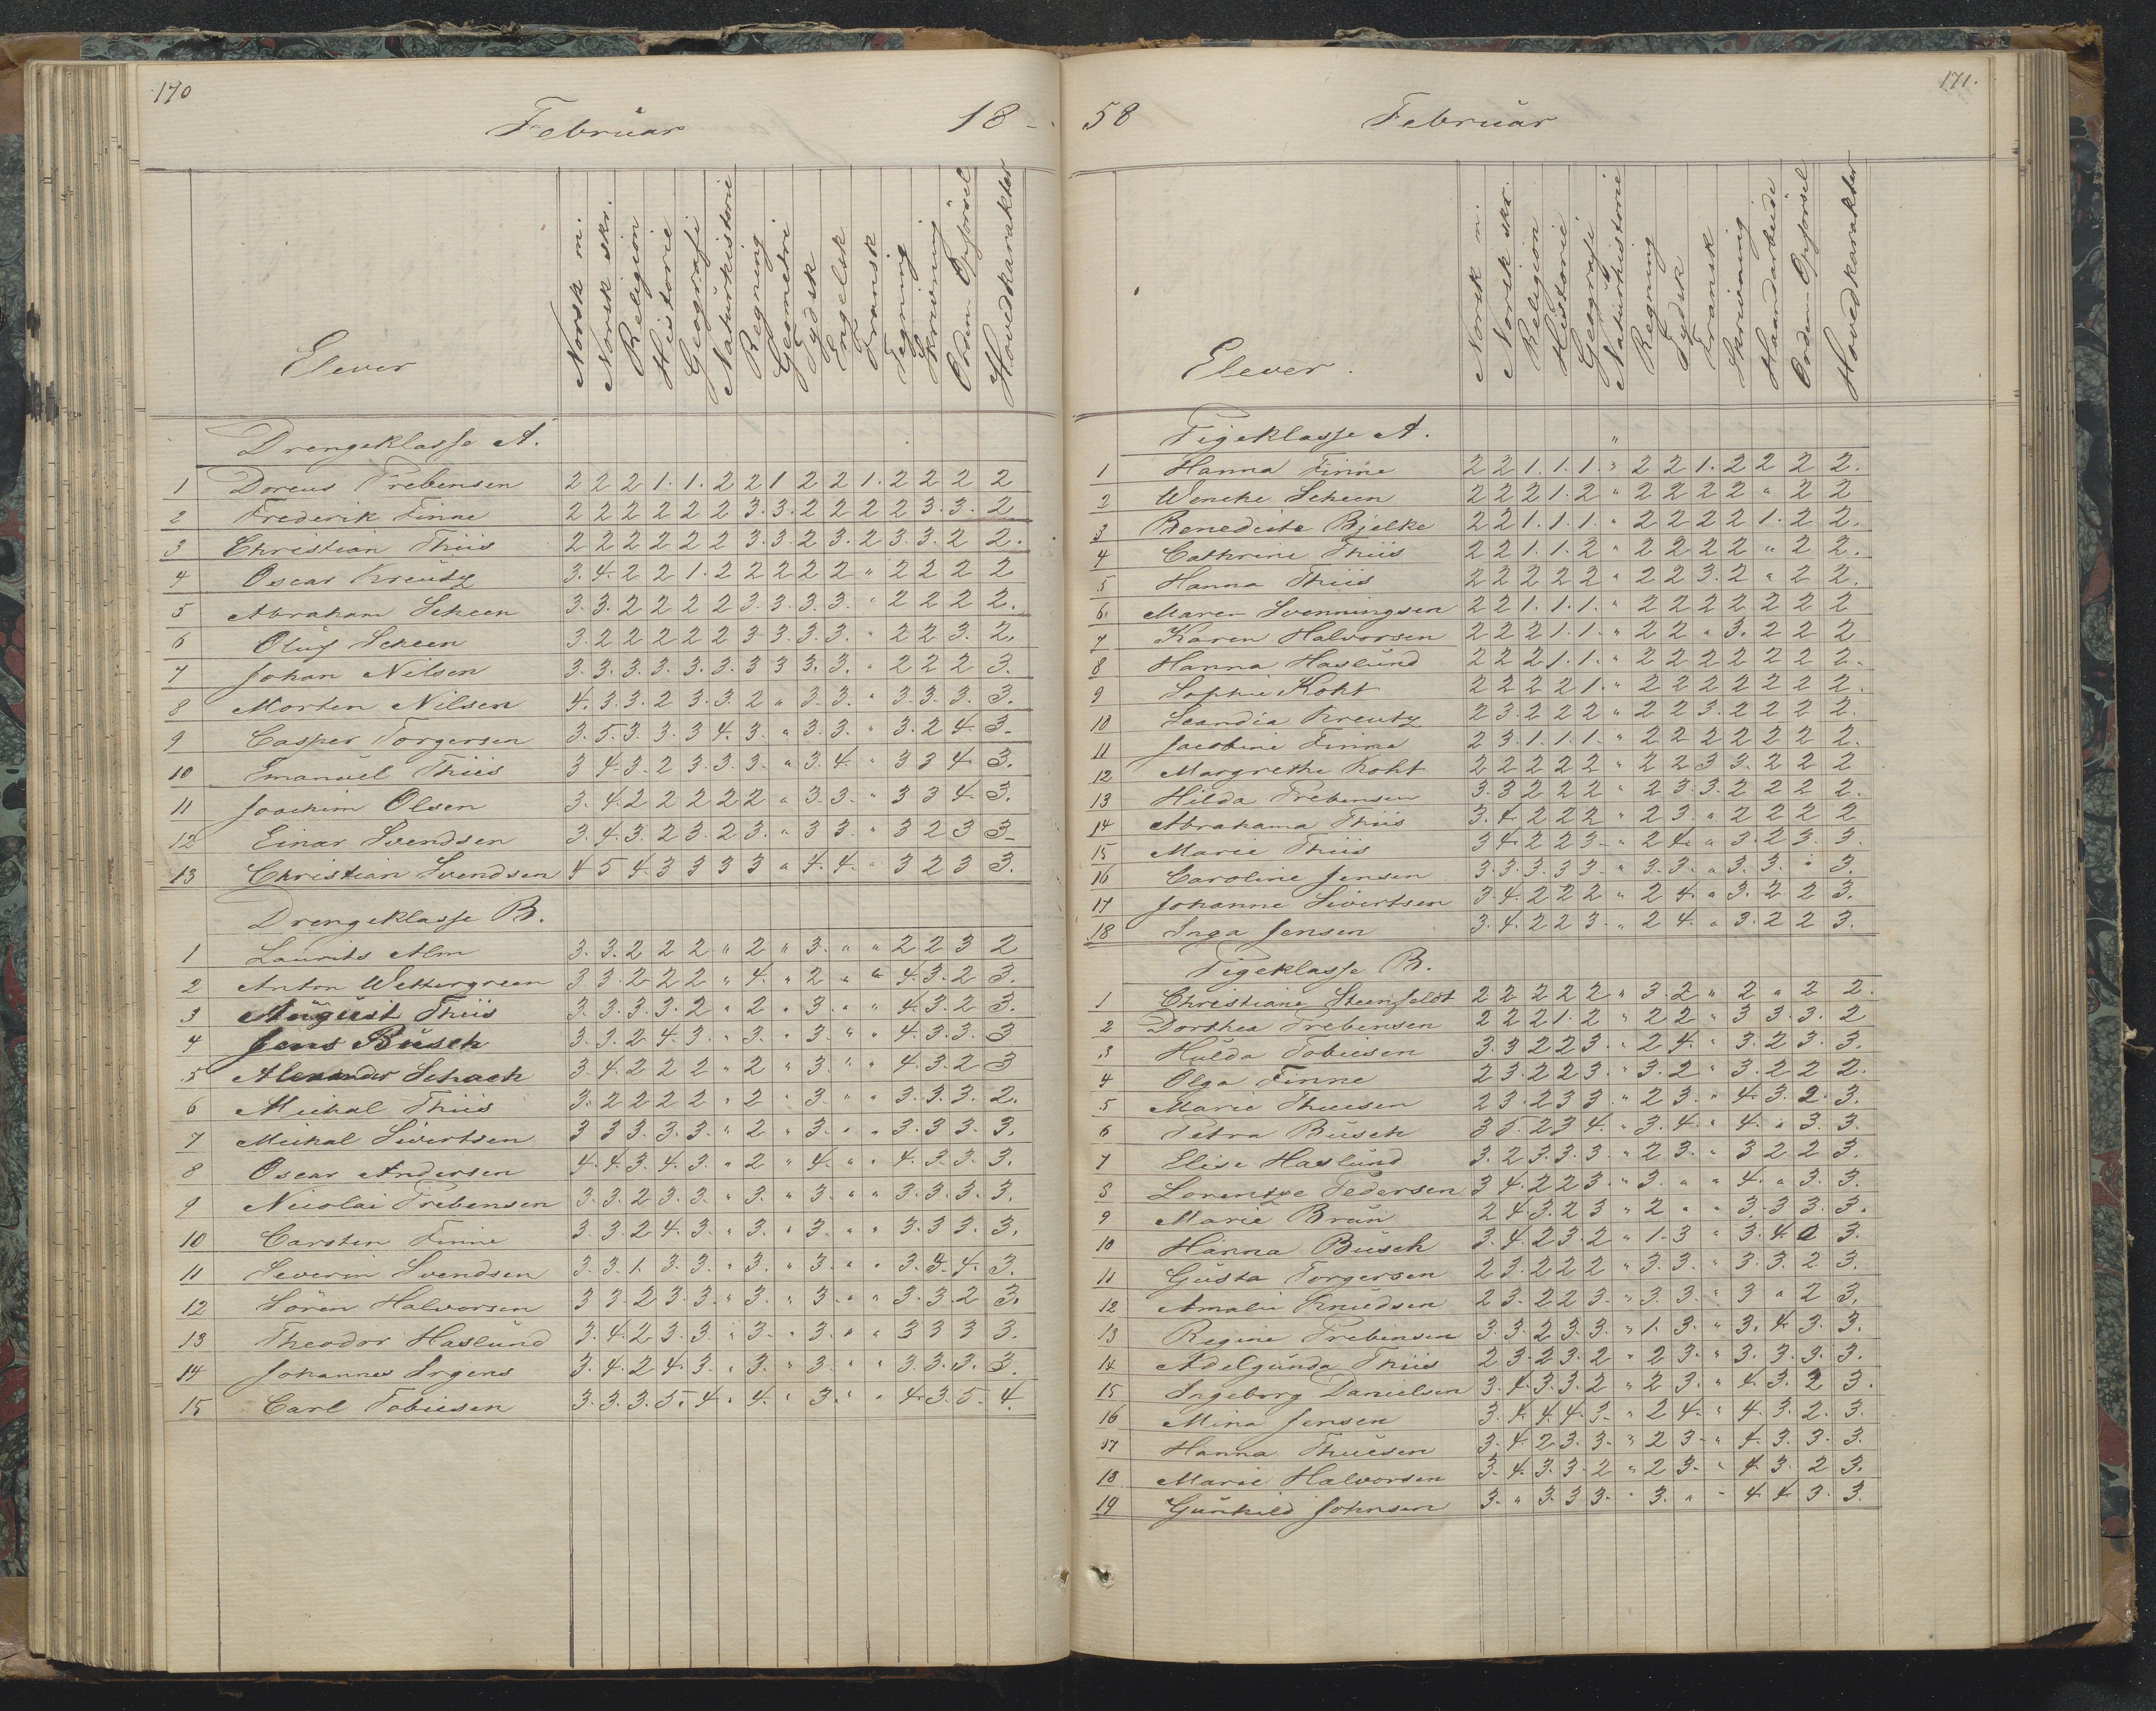 170
Februar 18-
Elever Norsk m. Norsk skr. Religion Historie Geografi Naturhistorie Regning Geometri Tydsk Engelsk Fransk Tegning Skrivning Orden Opførsel Hovedkarakter
Drengeklasse A.
1 Doreus Prebensen 2 2 2 1. 1. 2 2 1 2 2 1. 2 2 2 2
2 Frederik Finne 2 2 2 2 2 2 3. 3. 2 2 2 2 3. 3. 2
3 Christian Thiis 2 2 2 2 2 2 3. 3. 2 3. 2 3. 3. 2 2.
4 Oscar Kreutz 3. 4. 2 2 1. 2 2 2 2 2 " 2 2 2 2
5 Abraham Scheen 3. 3. 2 2 2 2 3. 3. 3. 3. " 2 2 2 2.
6 Oluf Scheen 3. 2 2 2 2 2 3 3. 3. 3. " 2 2 3. 2.
7 Johan Nilsen 3. 3. 3. 3. 3. 3. 3 3 3. 3. " 2 2 2 3.
8 Morten Nilsen 4. 3. 3. 2 3. 3. 2 " 3. 3. " 3. 3. 3. 3.
9 Casper Torgersen 3. 5. 3. 3. 3 4. 3. " 3. 3. " 3. 2 4. 3.
10 Emanuel Thiis 3 4. 3. 2 3. 3. 3. " 3. 4. " 3 3 4 3.
11 Joachim Olsen 3. 4. 2 2 2 2 2 " 3. 3. " 3 3 4. 3.
12 Einar Svendsen 3. 4. 3. 2 3. 2 3. " 3 3. " 3 2 3 3
13 Christian Svendsen 4 5 4. 3 3 3 3 " 4. 4. " 3 2 3 3.
Drengeklasse B.
1 Laurits Alm 3. 3. 2 2 2 " 2 " 3. " " 2 2 3 2
2 Anton Wettergreen 3 3. 2 2 2 " 4. " 2 " " 4. 3. 2 3.
3 August Thiis 3. 3. 3. 3. 2 " 2 " 3. " " 4. 3. 2 3.
4 Jens Busch 3. 3. 2 4. 3. " 3. " 3. " " 4. 3. 3. 3
5 Alexander Schach 3. 4. 2 2 2 " 2 " 3. " " 4. 3. 2 3
6 Mickal Thiis 3. 2 2 2 2 " 2 " 3. " " 3. 3. 3. 2.
7 Mickal Sivertsen 3 3 3. 3. 3. " 2 " 3. " " 3. 3 3. 3.
8 Oscar Andersen 4. 4. 3. 4. 3. " 2 " 4. " " 4. 3. 3. 3.
9 Nicolai Prebensen 3. 3. 2 3. 3. " 3. " 3. " " 3. 3. 3. 3.
10 Carsten Finne 3. 3. 2 4. 3. " 3. " 3. " " 3. 3 3. 3.
11 Severin Svendsen 3. 3. 1. 3. 3. " 3. " 3. " " 3. 3. 4. 3.
12 Sören Halvorsen 3 3. 2 3. 3. " 3. " 3. " " 3. 3. 2 3.
13 Theodor Haslund 3. 4. 2 3. 3. " 3. " 3. " " 3 3 3 3.
14 Johannes Irgens 3. 4. 2 4. 3. " 3. " 3. " " 3. 3. 3. 3.
15 Carl Tobiesen 3. 3. 3. 5. 4. " 4. " 3. " " 4. 3. 5. 4.
171.
58 Februar
Elever. Norsk m. Norsk skr. Religion Historie Geografi Naturhistorie Regning Tydsk Fransk Skrivning Haandarbeide Orden Opførsel Hovedkarakter
Pigeklasse A. "
1 Hanna Finne 2 2 1. 1. 1. " 2 2 1. 2 2 2 2.
2 Wencke Scheen 2 2 2 1. 2 " 2 2 2 2 " 2 2
3 Benedicte Bjelke 2 2 1. 1. 1. " 2 2 2 2 1. 2 2.
4 Cathrine Thiis 2 2 1. 1. 2 " 2 2 2 2 " 2 2.
5 Hanna Thiis 2 2 2 2 2 " 2 2 3. 2 " 2 2.
6. Maren Svenningsen 2 2 1. 1. 1. " 2 2 2 2 2 2 2
7 Karen Halvorsen 2 2 2 1. 1. " 2 2 " 3. 2 2 2
8 Hanna Haslund 2 2 2 1. 1. " 2 2 2 2 2 2 2.
9 Sophie Koht 2 2 2 2 1. " 2 2 2 2 2 2 2.
10 Scandia Kreutz 2 3. 2 2 2 " 2 2 3. 2 2 2 2.
11 Jacobine Finne 2 3. 1. 1. 1. " 2 2 2 2 2 2 2.
12 Margrethe Koht 2 2 2 2 2 " 2 2 3 3. 2 2 2
13 Hilda Prebensen 3. 3 2 2 2 " 2 3. 3. 2 2 2 2.
14 Abrahama Thiis 3. 4. 2 2 2 " 2 3. " 2 2 2 2
15 Marie Thiis 3 4. 2 2 3. " 2 4. " 3. 2 3. 3.
16 Caroline Jensen 3. 3. 3. 3 3. " 3. 3. " 3. 3. " 3.
17 Johanne Sivertsen 3. 4. 2 2 2 " 2 4. " 3. 2 2 3.
18 Inga Jensen 3. 4. 2 2 3. " 2 4. " 3. 2 2 3.
Pigeklasse B.
1 Christiane Steenfeldt 2 2 2 2 2 " 3. 2 " 2 " 2 2.
2 Dorthea Prebensen 2 2 2 1. 2 " 2 2 " 3 3. 3. 2
3 Hulda Tobiesen 3. 3 2 2 3 " 2 4. " 3. 2 3. 3.
4 Olga Finne 2 3. 2 2 3. " 3. 2 " 3. 2 2 2.
5 Marie Thuesen 2 3. 2 3 3. " 2 3. " 4. 3. 2. 3.
6 Petra Busch 3 5. 2 3 4. " 3. 4. " 4. " 3. 3.
7 Elise Haslund 3. 2 3. 3. 3. " 2 3. " 3 2 2 3.
8 Lorentze Pedersen 3 4. 2 2 3. " 3. " " 4. " 3. 3.
9 Marie Brun 2 4. 3. 2 3 " 2 " " 3. 3 3. 3.
10 Hanna Busch 3. 4. 2 3. 2 " 1. 3 " 3. 4. 3.
11 Gusta Torgersen 2 3. 2 2 2 " 3. 3. " 3. 3. 2 3.
12 Amalie Knudsen 2 3. 2 2 3. " 3. 3. " 3 " 2 3.
13 Regine Prebensen 3. 3. 2 3. 3. " 1. 3. " 3. 4. 3. 3.
14 Adelgunda Thiis 2 3. 2 3. 2 " 2 3. " 3. 3. 3. 3.
15 Ingeborg Danielsen 3. 4. 3. 3. 2 " 2 3. " 4. 3. 2 3.
16 Mina Jensen 3. 4. 4. 4. 3. " 2 4. " 4. 3. 2. 3.
17 Hanna Thuesen 3. 4. 2 3. 3. " 2 3. " 4. 3. 3. 3.
18 Marie Halvorsen 3. 4. 3. 3. 2 " 2 3. " 4. 3. 2 3.
19 Gunhild Johnsen 3. " 3. 3 3. " 3. " " 4. 4. 3. 3.